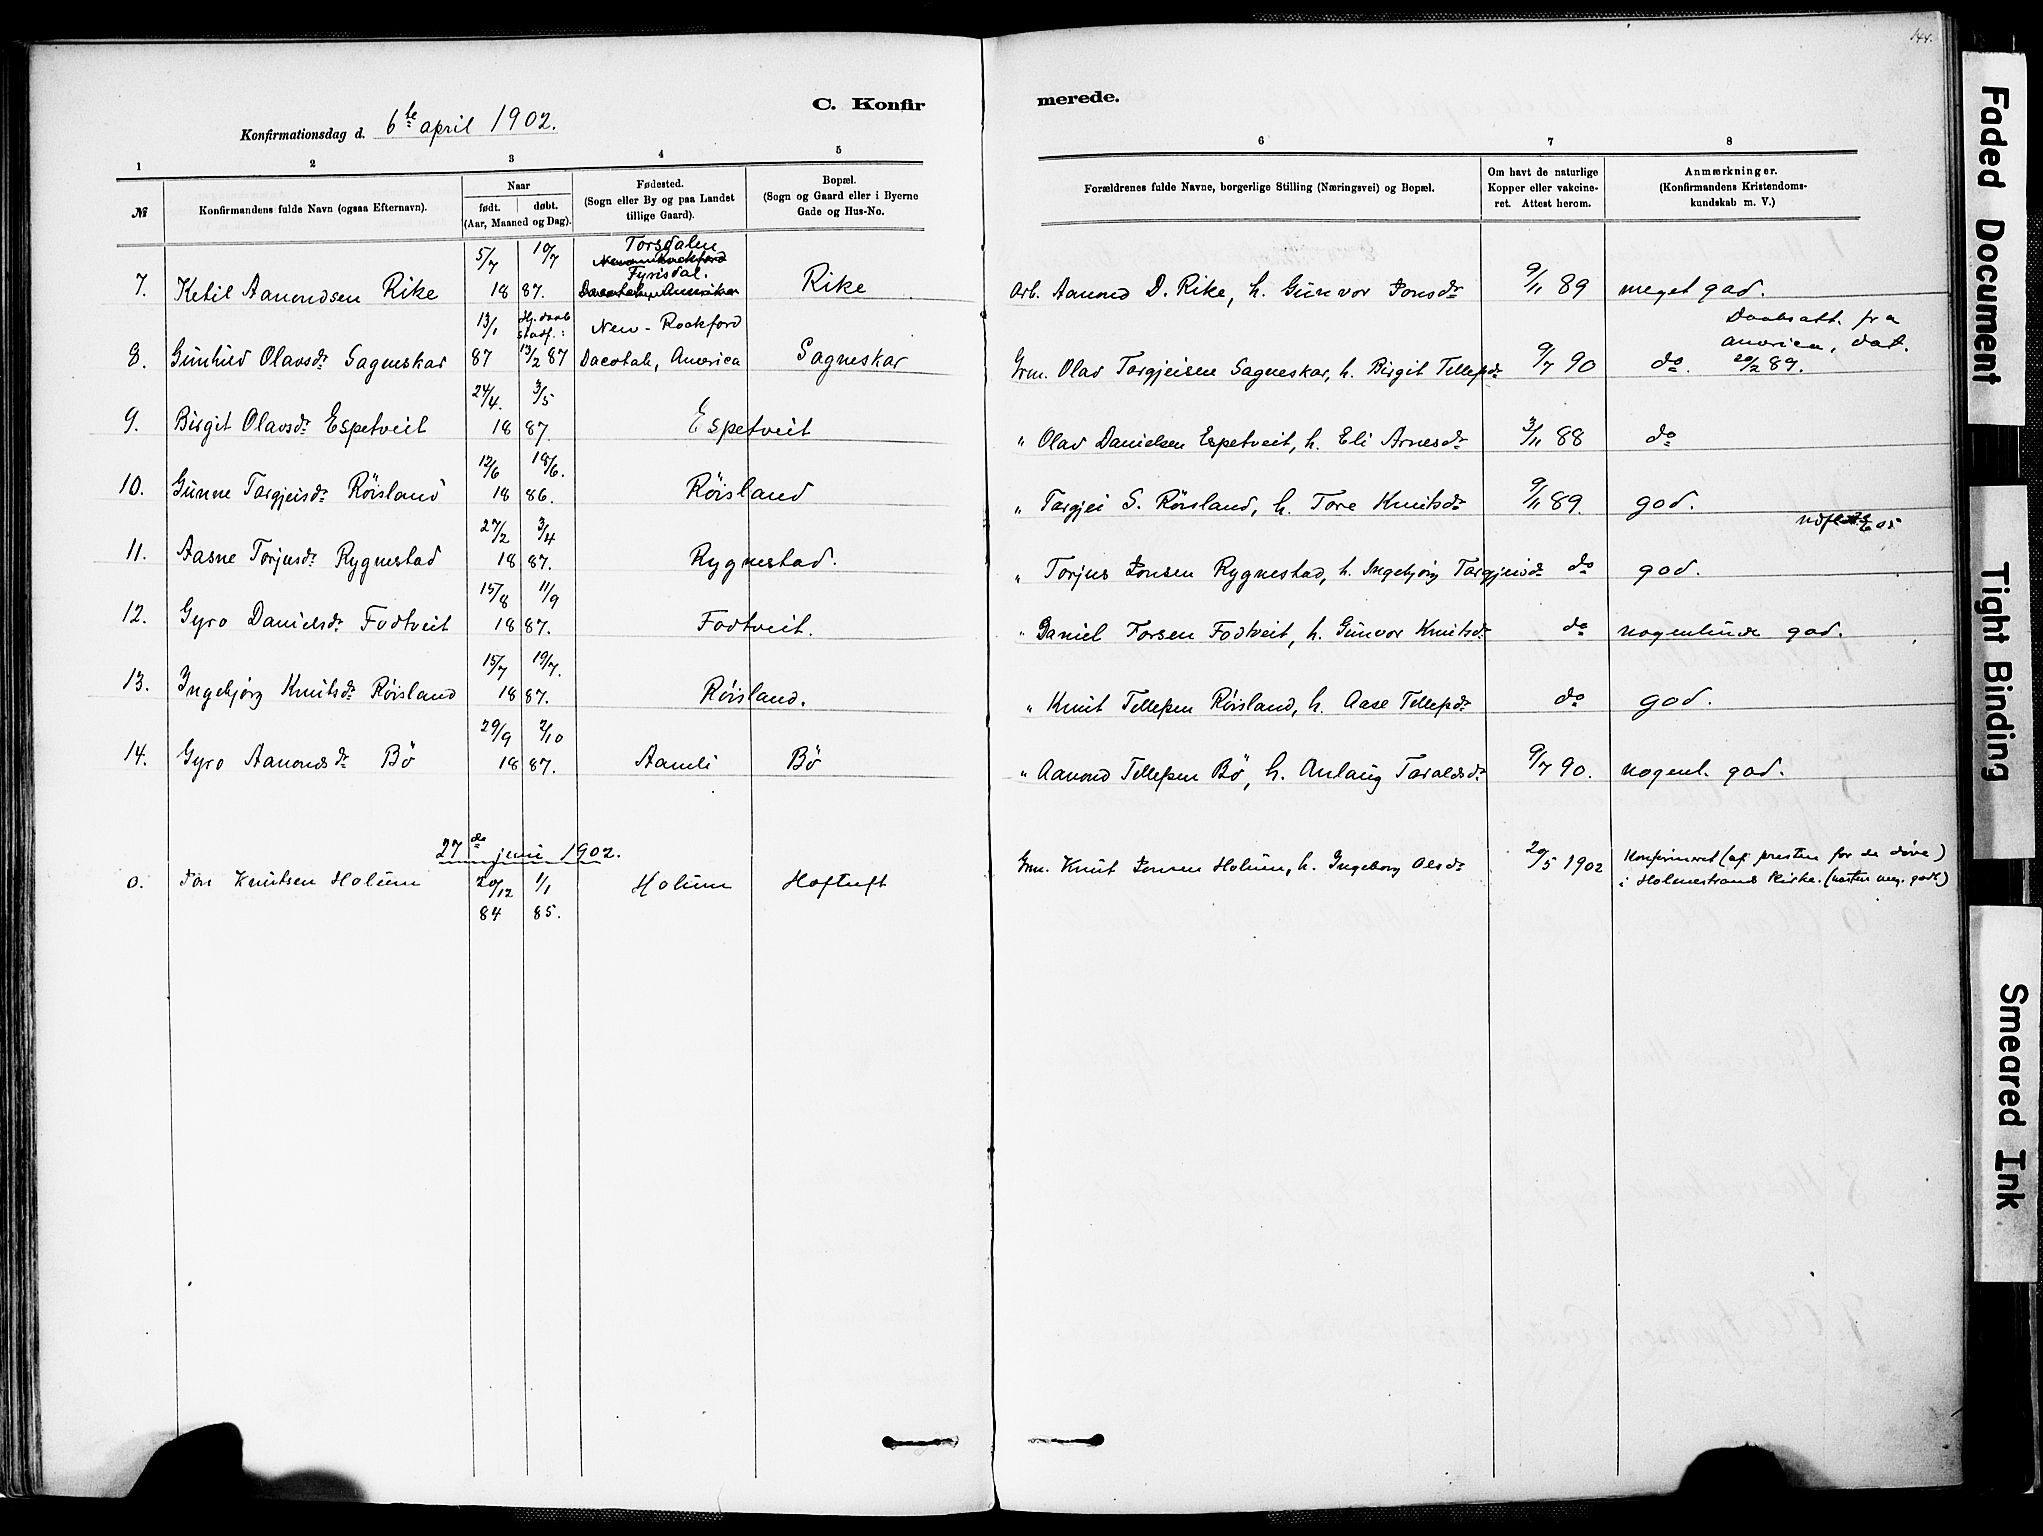 144.
C. Konfir
merede.
Konfirmationsdag d. 6te april 1902.
1 2 3 4 5
6 7 8
№
Konfirmandens fulde Navn (ogsaa Efternavn).
Naar
født. døbt.
(Aar, Maaned og Dag).
Fødested.
(Sogn eller By og paa Landet
tillige Gaard).
Bopæl.
(Sogn og Gaard eller i Byerne
Gade og Hus-No.
Forældrenes fulde Navne, borgerlige Stilling (Næringsvei) og Bopæl.
Om havt de naturlige
Kopper eller vakcine-
ret. Attest herom.
Anmærkninger.
(Konfirmandens Kristendoms-
kundskab m. V.)
5/7 10/7 Torsdalen
New-Rockford
Fyrisdal.
7. Ketil Aanondsen Rike 18 87. Dacotah, Amerika Rike Arb. Aanond D. Rike, h. Gunvor Jonsdr 9/11 89 meget god.
13/1 Hj. daab New-Rockford Daabsatt. fra
stadf.: America, dat.
8. Gunhild Olavsdr Sagneskar 87 13/2 87 Dacotah, America Sagneskar Grm. Olav Targjeisen Sagneskar, h. Birgit Tellefsdr 9/7 90 do. 20/2 89.
24/4. 3/5
9. Birgit Olavsdr Espetveit 18 87. Espetveit " Olav Danielsen Espetveit, h. Eli Arnesdr 3/11 88 do
12/6 18/6.
10. Gunne Targjeisdr Röisland 18 86. Röisland " Targjei S. Röisland, h. Tore Knutsdr 9/11 89. god.
27/2 3/4
11. Aasne Torjusdr Rygnestad 18 87. Rygnestad. " Torjus Jonsen Rygnestad, h. Ingebjörg Targjeisdr do god.
15/8 11/9
12. Gyro Danielsdr Fodtveit 18 87. Fodtveit. " Daniel Torsen Fodtveit, h. Gunvor Knutsdr do nogenlunde god.
15/7 19/7.
13. Ingebjörg Knutsdr Röisland 18 87. Röisland. " Knut Tellefsen Röisland, h. Aase Tellefsdr do god.
29/9 2/10
14. Gyro Aanondsdr Bö 18 87. Aamli Bö " Aanond Tellefsen Bö, h. Anlaug Taraldsdr 9/7 90. nogenl. god.
27de juni 1902.
0. Jon Knutsen Holum 20/12 1/1 Holum Hoftuft Grm. Knut Jonsen Holum, h. Ingeborg Olsdr 20/5 1902 Konfirmeret (af presten for de döve)
84 85. i Holmestrand Kirke. (næsten meg. godt)
Faded Document
Tight Binding
Smeared Ink